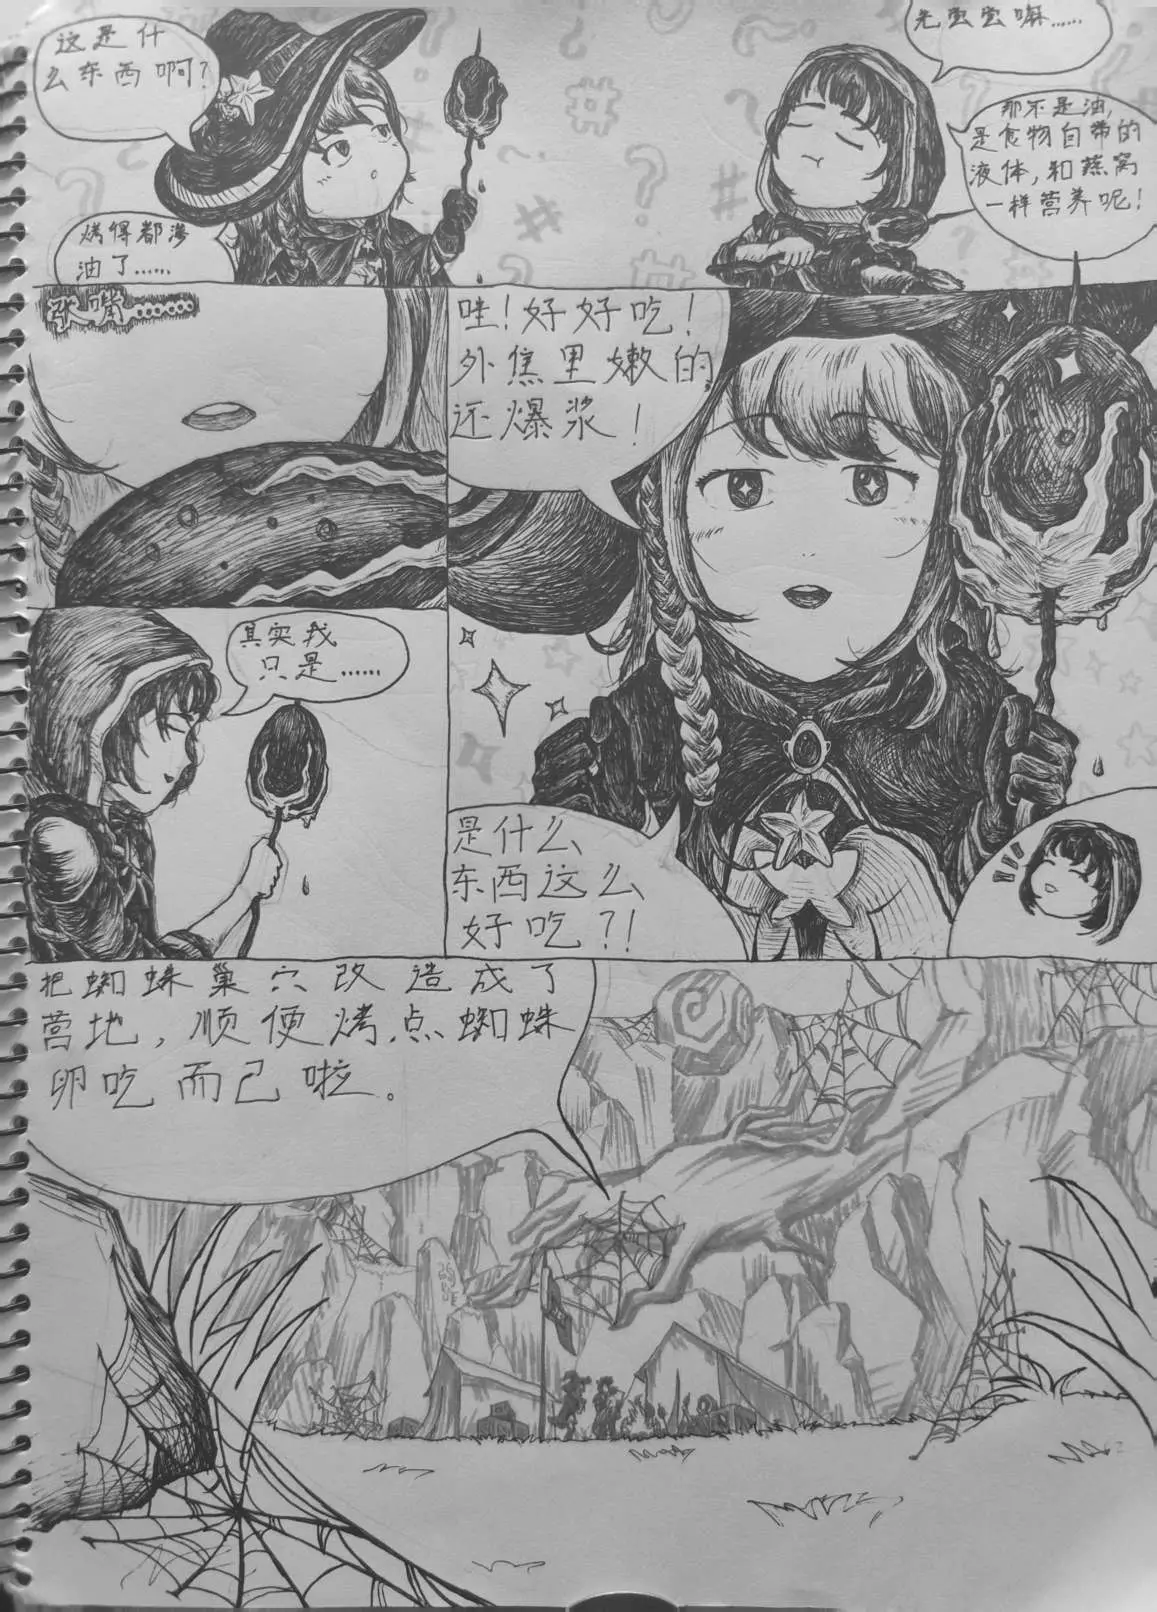 这是什
么东西啊?
烤得都渗
油了……
先尝尝嘛……
那不是油,
是食物自带的
液体,和燕窝
一样营养呢!
张嘴……
哇!好好吃!
外焦里嫩的,
还爆浆!
其实我
只是……
是什么
东西这么
好吃?!
把蜘蛛巢穴改造成了
营地,顺便烤点蜘蛛
卵吃而已啦。